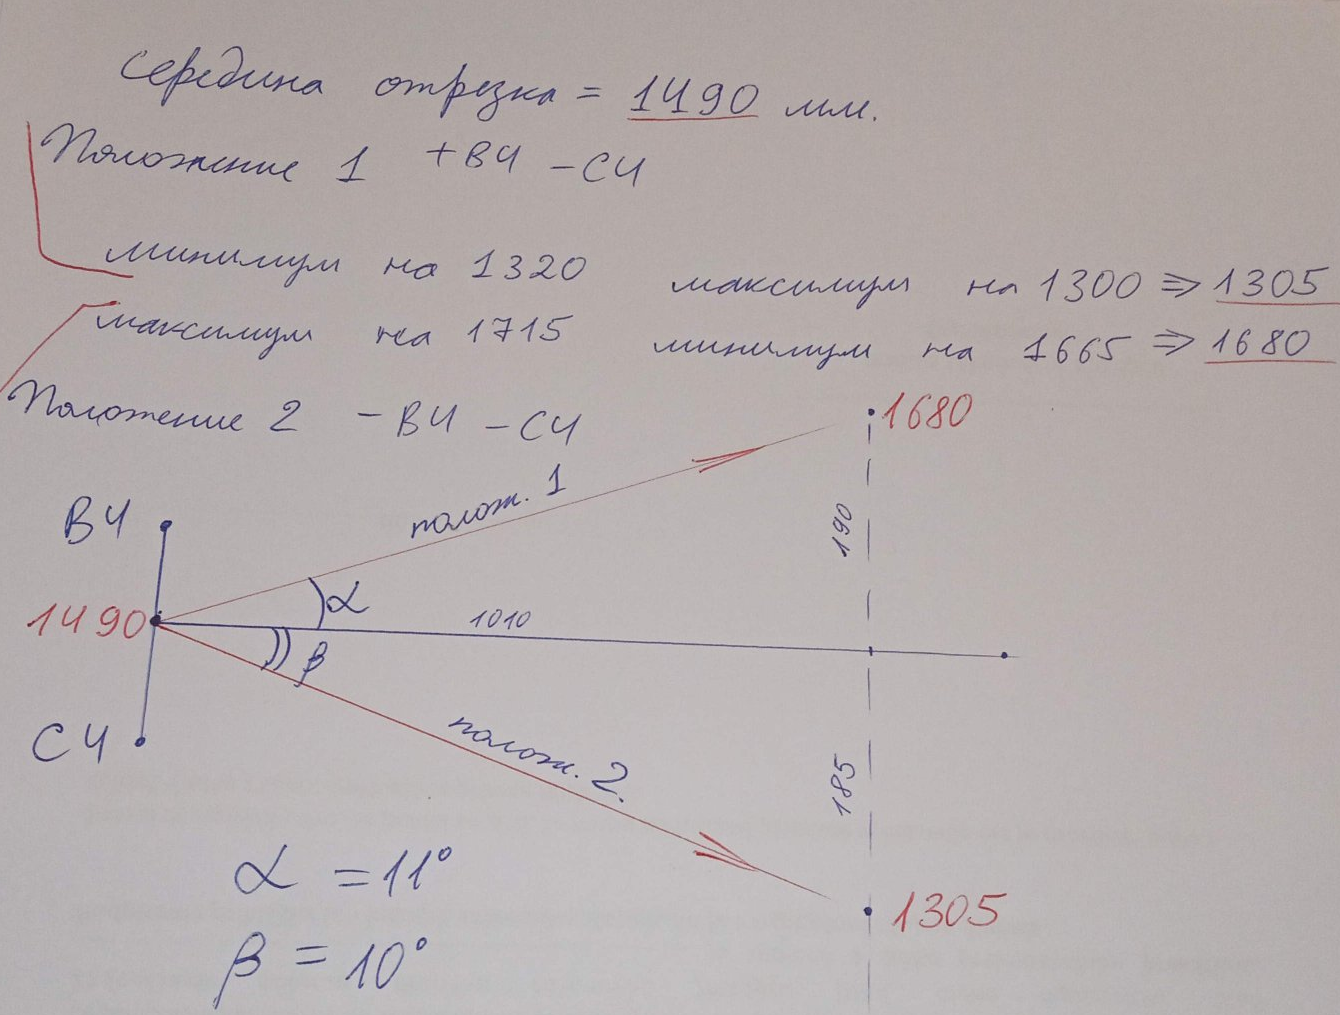 Середина отрезка = 1490 мм.
Положение 1 +ВЧ -СЧ
минимум на 1320 максимум на 1300 ⇒ 1305
максимум на 1715 минимум на 1665 ⇒ 1680
Положение 2 -ВЧ -СЧ
1680
полож. 1
ВЧ
190
α
1490
1010
β
СЧ
полож. 2.
185
α = 11°
1305
β = 10°